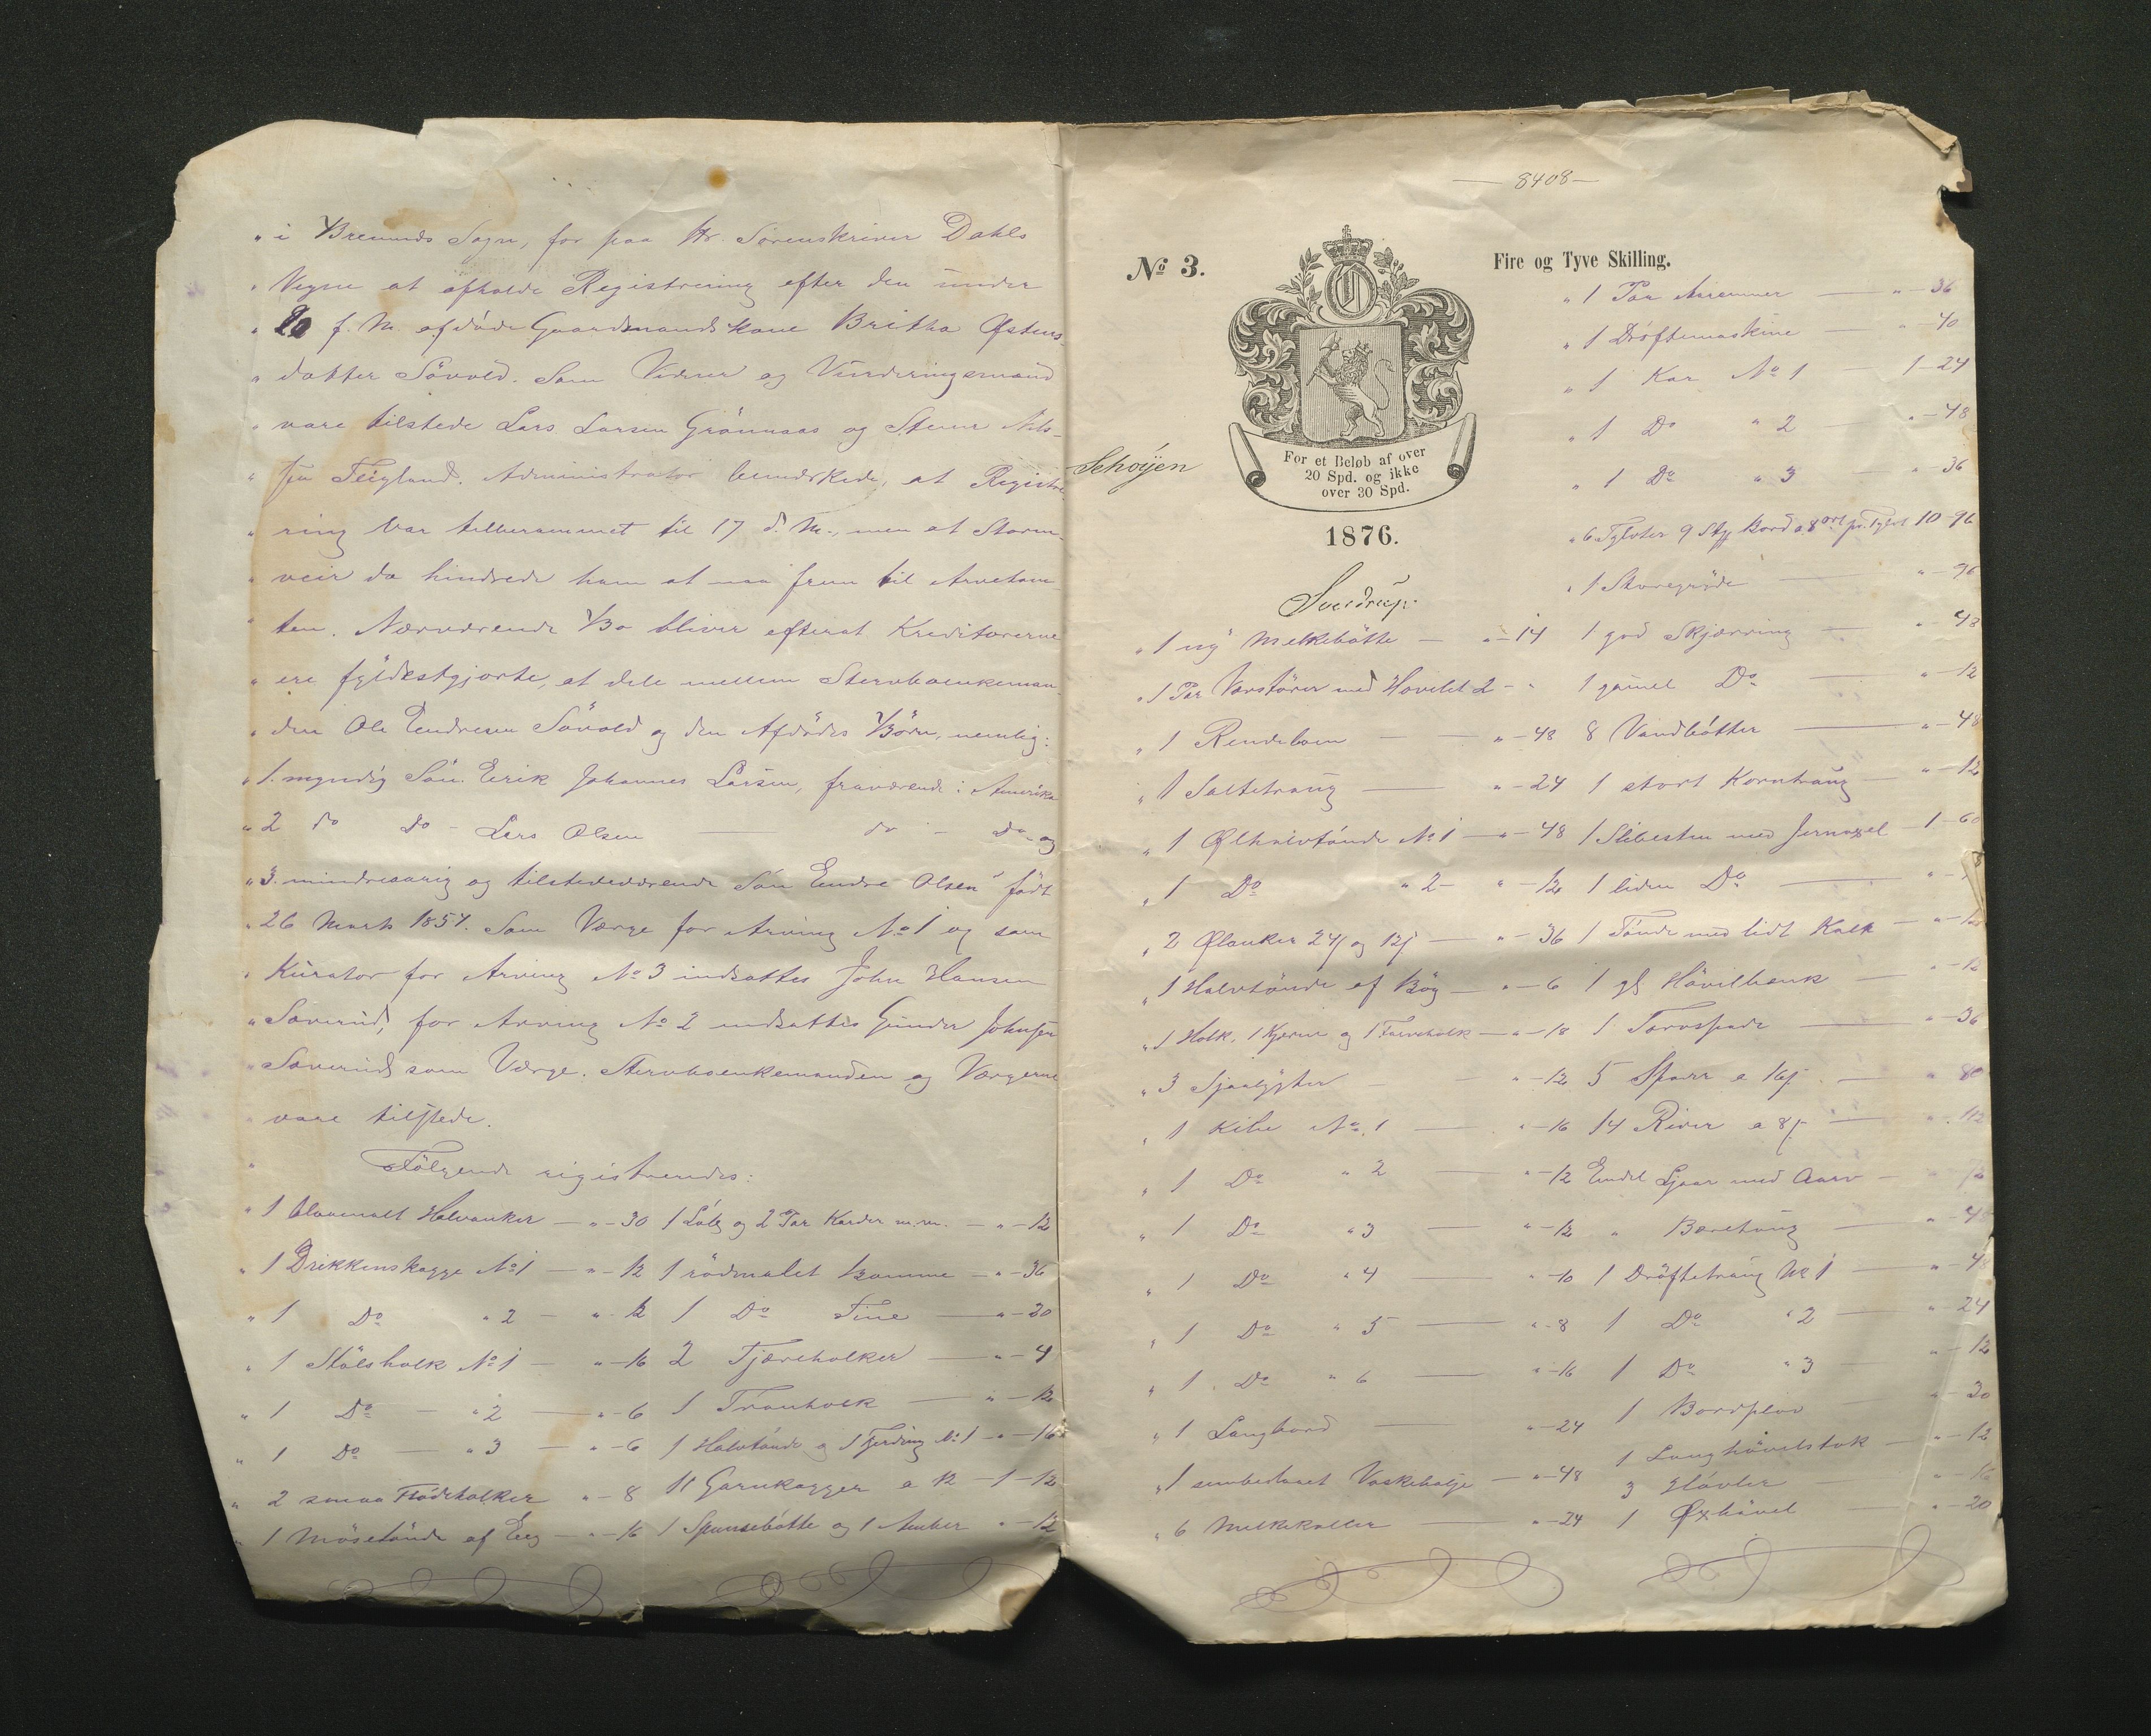 " i Bremnæs Sogn, for paa Hr. Sorenskriver Dahls
" Vegne at afholde Registrering efter den under
" 20 f. M. afdøde Gaardmandskone Britha Østens-
" datter Såvold. Som Vidner og Vurderingsmænd
" vare tilstede Lars Larsen Grönnaas og Stener Nils-
" sen Teigland. Administrator bemærkede, at Registre
" ring var tilberammet til 17 d. M., men at Storm-
" veir da hindrede ham at naa frem til Arvetom
" ten. Nærværende Bo bliver efterat Kreditorerne
" ere fyldestgjorte, at dele mellem Stervboenkeman
" den Ole Endresen Såvold og den Afdødes Börn, nemlig:
" 1. myndig Sön Eerik Johannes Larsen, fraværende i Amerika
" 2 do Do - Lars Olsen do - Do- og
" 3. mindreaarig og tilstedeværende Sön Endre Olsen født
" 26 Marts 1857. Som Værge for Arving No 1 og som
" Kurator for Arving No 3 indsattes John Hansen
" Såverud, for Arving No 2 indsattes Gunder Johnsen
" Såverud som Værge. Stervboenkemanden og Værgerne
" vare tilstede.
" Fölgende registreredes:
" 1 blaamalt Halvanker - " - 30 1 Låg og 2 Par Karder m.m. - " - 12
" 1 Drikkenskagge No 1 - " - 12 1 rödmalet Komme - " - 36
" 1 Do " 2 - " - 12 1 Do Tine - " - 20
" 1 Stölsholk No 1 - " - 16 2 Tjæreholker - " - 4
" 1 Do - " 2 - " - 6 1 Tranholk - " - 12
" 1 Do - " 3 - " - 6 1 Halvtönde og 1 Fjerding No 1 - " - 16
" 2 smaa Flödeholker " - 8 11 Garnkagger a 12 - 1 - 12
" 1 Mösetönde af Eeg - " - 16 1 Spunsebötte og 1 Amber " - 12
- 8408 -
No 3.
Fire og Tyve Skilling.
O
For et Beløb af over
20 Spd. og ikke
over 30 Spd.
Schöyen
1876.
Sverdrup
" 1 ny Melkebötte - " - 14
" 1 Par Vævstörer med Hovelet 2 - "
" 1 Rendebom - " - 48
" 1 Saltetraug - " - 24
" 1 Ølhalvtönde No 1 - " - 48
" 1 Do " 2 - " - 12
" 2 Ølanker 24ſ og 12ſ - " - 36
" 1 Halvtönde af Bög - " - 6
" 1 Holk, 1 Kjerne og 1 Farveholk - " - 18
" 3 Sjaalygter - " - 12
" 1 Kibe No. 1 - " - 16
" 1 Do " 2 - " - 12
" 1 Do " 3 - " - 12
" 1 Do " 4 - " - 10
" 1 Do " 5 - " - 8
" 1 Do " 6 - " - 16
" 1 Langbord - " - 24
" 1 Vaskebalje - " - 48
" 6 Melkekoller - " - 24
" 1 Par - " - 36
" 1 Dröftemaskine - " - 40
" 1 Kar No 1 - 1 - 24
" 1 Do " 2 - " - 48
" 1 Do " 3 - " - 36
" 6 Tylvter 9 Stk Bord a 8 ort pr. Tylvt 10 - 96
" 1 Storegryde - " - 96
1 god Skjærring - " - 48
1 gamel Do - " - 12
8 Vandbötter - " - 48
1 stort Korntraug - " - 12
1 Slibesten med Jernaxel - 1 - 60
1 liden Do - " -
1 Tönde med lidt Kalk - " - 12
1 gl Hövilbænk - " - 12
1 Torvspade - " - 36
5 Sparr a 16ſ - " 80
14 River a 8ſ - " 112
Endel Ljaar med Aarv - "
" Bæretöug - " - 48
1 Dröftetraug No 1 - " - 4
1 Do " 2 - " 24
1 Do " 3 - " - 12
1 Bordplov - " - 30
1 Langhövelstok - " - 12
3 Hövler - " - 16
1 Øxhövel - " - 20